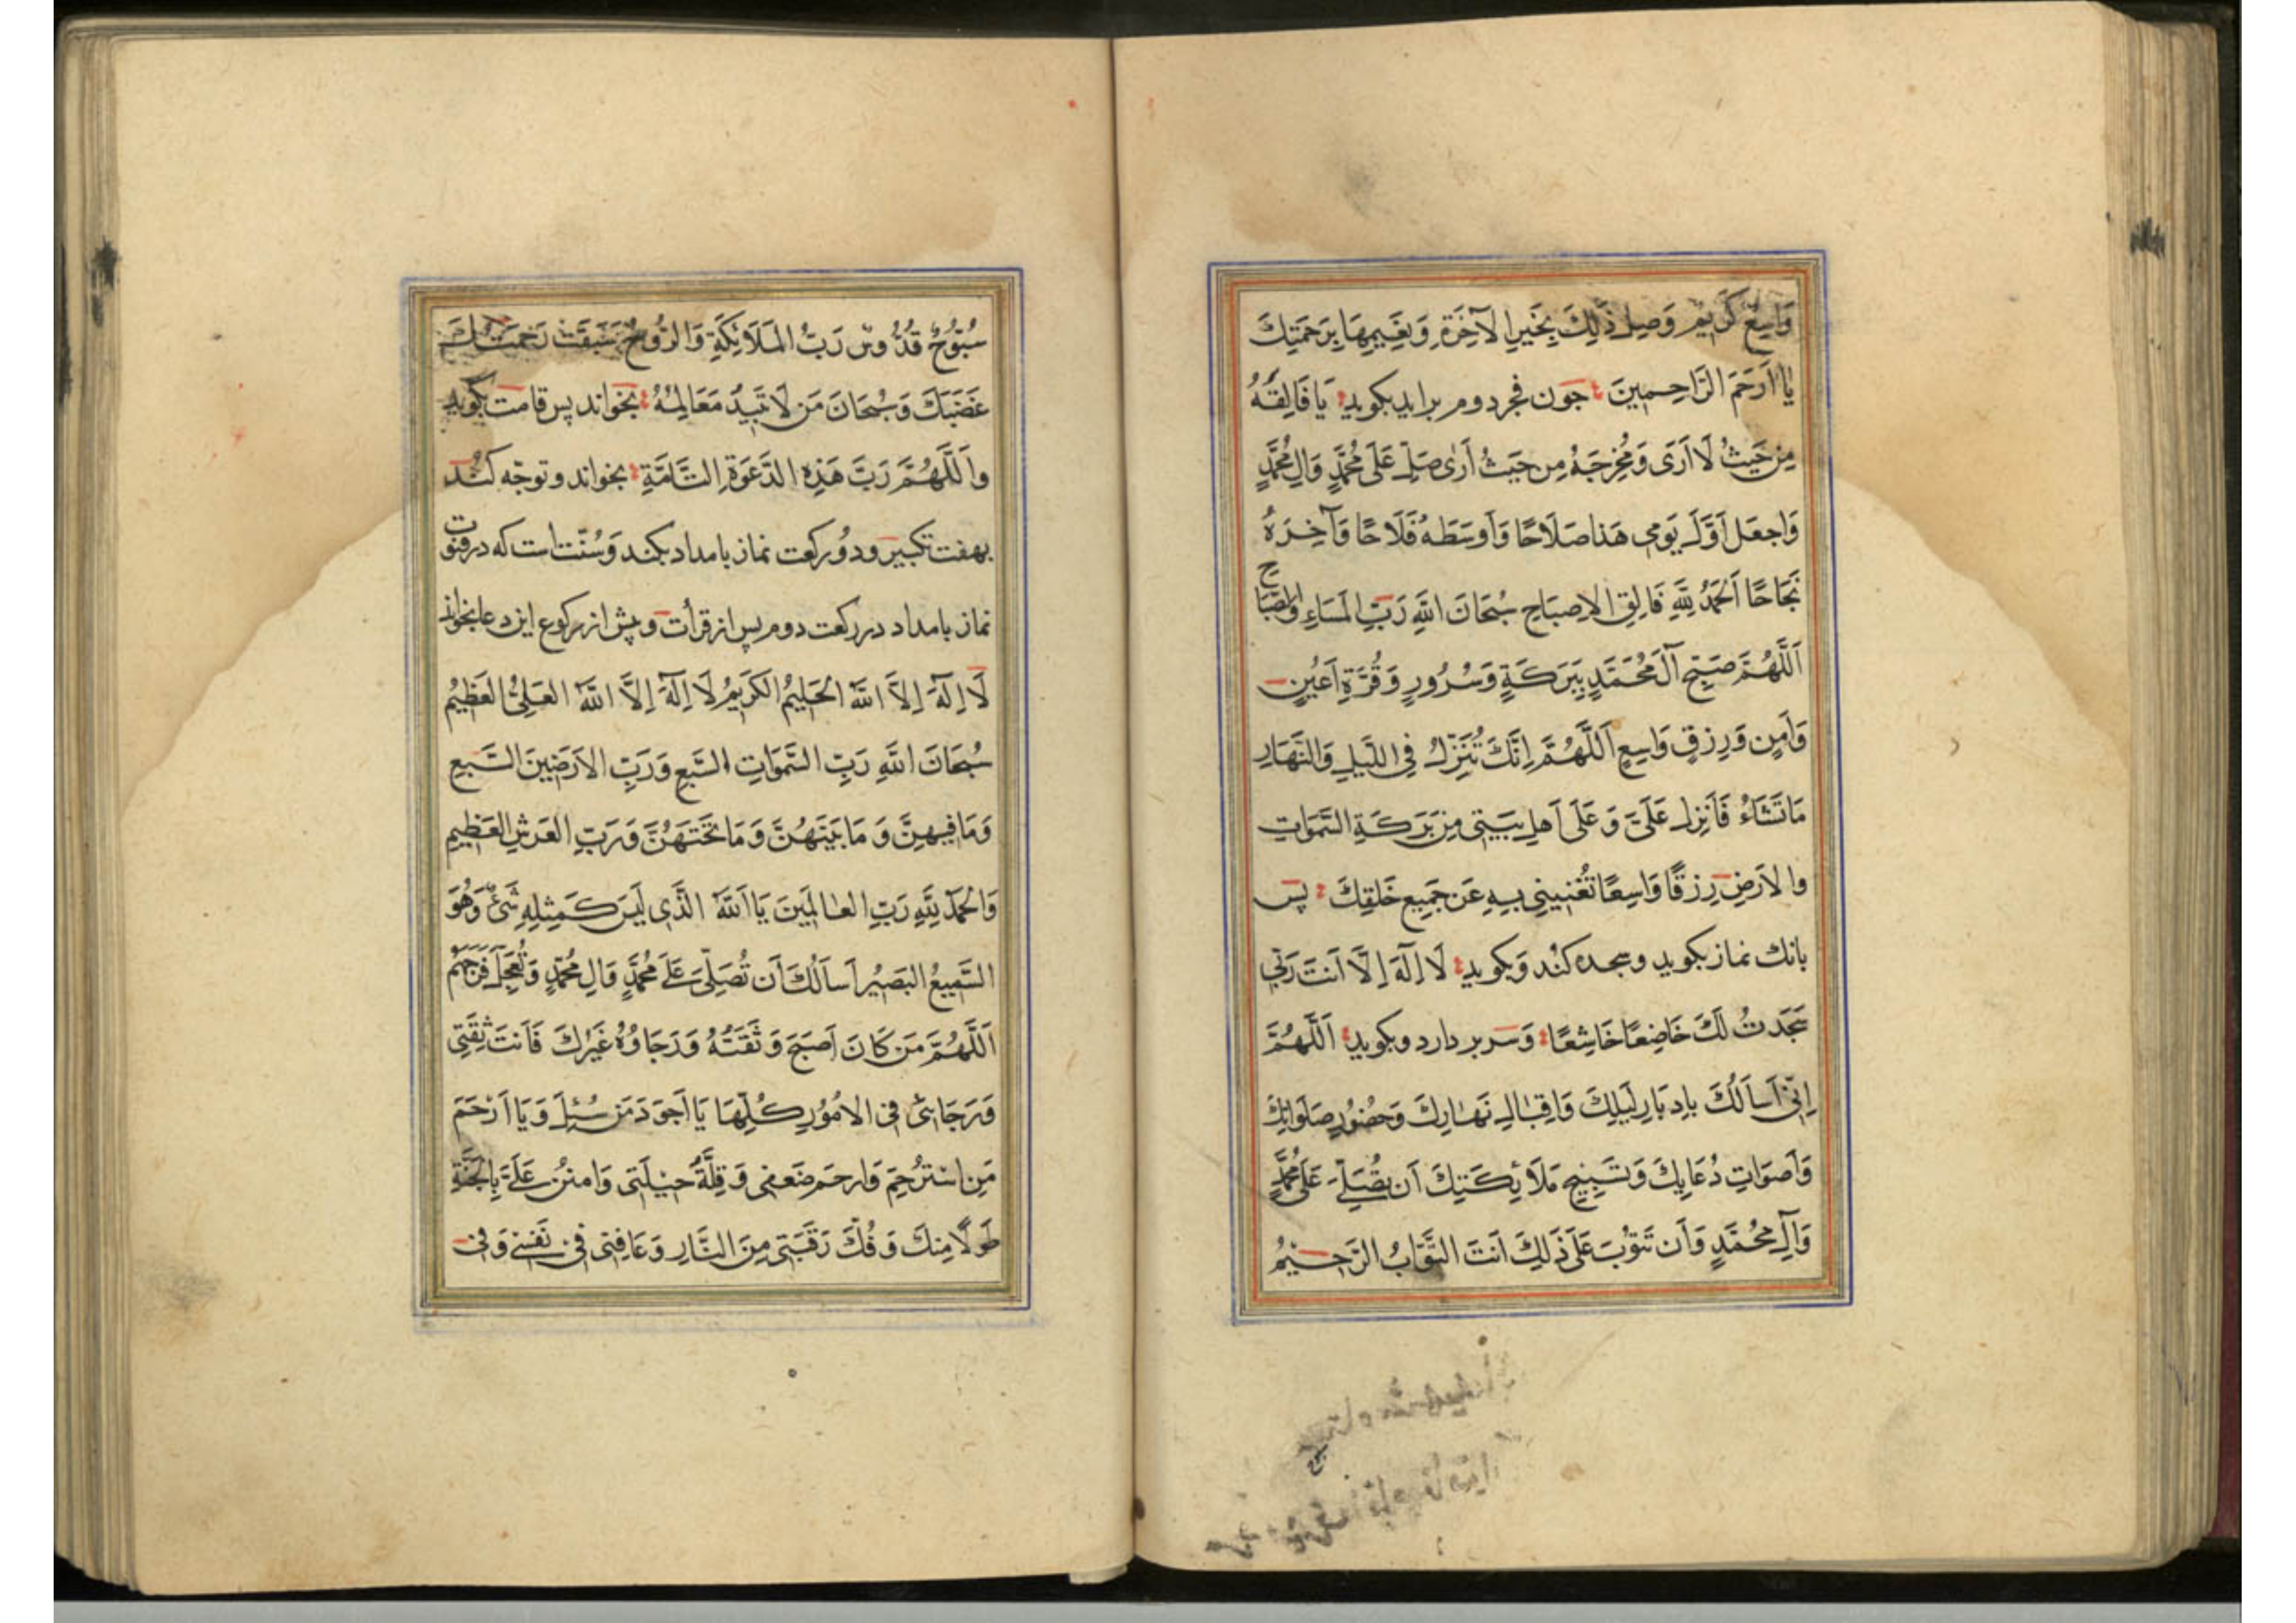 وَاسِعٌ كَرِيمٌ وَصِل ذَلِكَ بِخَيرِ الآخِرَةِ وَنَعِيمِهَا بِرَحمَتِكَ
يَا اَرحَمَ الرَّاحِمِينَ جون فجر دوم برايد بكويد يَا فَالِقَهُ
مِن حَيثُ لَا اَرَى وَمُخرِجَهُ مِن حَيثُ أَرَى صَلِّ عَلَى مُحَمَّدٍ وَالِ مُحَمَّدٍ
وَاجعَل اَوَّلَ يَومِي هَذا صَلَاحًا وَاَوسَطَهُ فَلَاحًا وَآخِرَهُ
نَجَاحًا اَلحَمدُ لِلَّهِ فَالِقِ الاِصبَاحِ سُبحَانَ اللَّهِ رَبِّ المَسَاءِ وَالصَّبَاحِ
اَللَّهُمَّ صَبِّح آلَ مُحَمَّدٍ بِبَرَكَةٍ وَسُرُورٍ وَقُرَّةِ اَعيُنٍ
وَاَمنٍ وَرِزقٍ وَاسِعٍ اَللَّهُمَّ اِنَّكَ تُنَزِّلُ فِي اللَّيلِ وَالنَّهَارِ
مَا تَشَاءُ فَاَنزِل عَلَيَّ وَعَلَى اَهلِ بَيتِي مِن بَرَكَةِ السَّمَوَاتِ
والاَرضِ رِزقًا وَاسِعًا تُغنِينِي بِهِ عَن جَمِيعِ خَلقِكَ پس
بانك نماز بكويد وسجده كند وَبكويد لَا اِلَهَ اِلَّا اَنتَ رَبِّي
سَجَدتُ لَكَ خَاضِعًا خَاشِعًا وَسر بر دارد وبكويد اَللَّهُمَّ
اِنِّي اَسأَلُكَ بِاِدبَارِ لَيلِكَ وَاِقبَالِ نَهَارِكَ وَحُضُورِ صَلَوَاتِكَ
وَاَصوَاتِ دُعَائِكَ وَتَسبِيحِ مَلَائِكَتِكَ اَن تُصَلِّيَ عَلَى مُحَمَّدٍ
وَآلِ مُحَمَّدٍ وَأَن تَتُوبَ عَلَيَّ ذَلِكَ اَنتَ التَّوَّابُ الرَّحِيمُ
سُبُّوحٌ قُدُّوسٌ رَبُّ المَلَائِكَةِ وَالرُّوحِ سَبَقَت رَحمَتُكَ
غَضَبَكَ وَسُبحَانَ مَن لَا تَبِيدُ مَعَالِمُهُ بخواند پس قامت بكويد
واَللَّهُمَّ رَبَّ هَذِهِ الدَّعوَةِ التَّامَّةِ بخواند وتوجّه كند
بهفت تكبير ودو ركعت نماز بامداد بكند وَسُنّت است كه در قنوت
نماز بامداد در ركعت دوم پس از قرأت وپيش از ركوع اين دعا بخواند
لَا اِلَهَ اِلَّا اللَّهُ الحَلِيمُ الكَرِيمُ لَا اِلَهَ اِلَّا اللَّهُ العَلِيُّ العَظِيمُ
سُبحَانَ اللَّهِ رَبِّ السَّمَوَاتِ السَّبعِ وَرَبِّ الاَرَضِينَ السَّبعِ
وَمَا فِيهِنَّ وَمَا بَينَهُنَّ وَمَا تَحتَهُنَّ وَرَبِّ العَرشِ العَظِيمِ
وَالحَمدُ لِلَّهِ رَبِّ العَالَمِينَ يَا اَللَّهُ الَّذِي لَيسَ كَمِثلِهِ شَيءٌ وَهُوَ
السَّمِيعُ البَصِيرُ اَسأَلُكَ أَن تُصَلِّيَ عَلَى مُحَمَّدٍ وَالِ مُحَمَّدٍ وَتُعَجِّلَ فَرَجَهُم
اَللَّهُمَّ مَن كَانَ اَصبَحَ وَثِقَتُهُ وَرَجَاؤُهُ غَيرُكَ فَاَنتَ ثِقَتِي
وَرَجَائِي فِي الاُمُورِ كُلِّهَا يَا اَجوَدَ مَن سُئِلَ وَيَا اَرحَمَ
مَنِ استُرحِمَ وَارحَم ضَعفِي وَقِلَّةَ حِيلَتِي وَامنُن عَلَيَّ بِالجَنَّةِ
طَولًا مِنكَ وَفُكَّ رَقَبَتِي مِنَ النَّارِ وَعَافِنِي فِي نَفسِي وَفِي